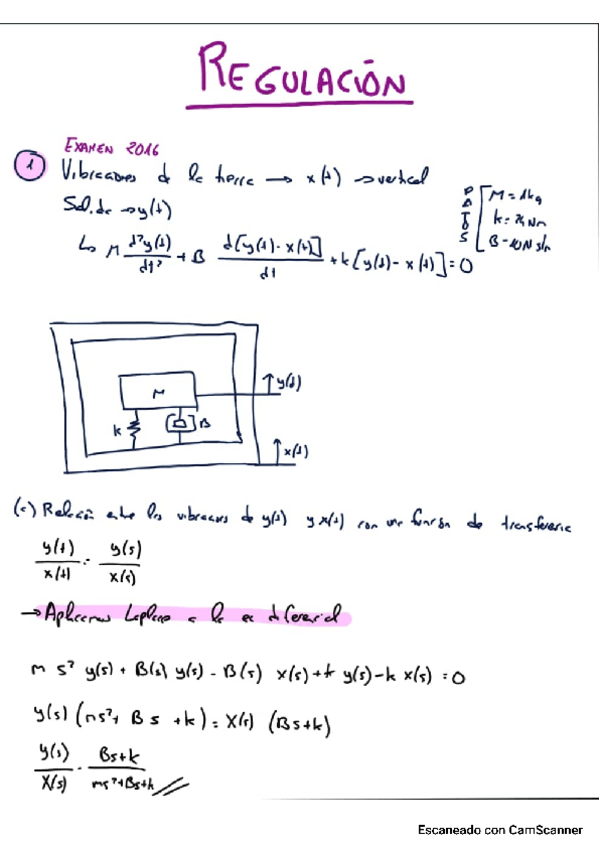 REGULACIÓN
EXAMEN 2016
1 Vibraciones de la tierra → x(t) → vertical
Salida → y(t)
DATOS
M = 1kg
k = N/m
B = 10 N s/m
↳ M d²y(t)/dt² + B d[y(t) - x(t)]/dt + k[y(t) - x(t)] = 0
M
y(t)
k
B
x(t)
Relación entre las vibraciones de y(t) y x(t) con una función de transferencia
y(t)/x(t) = y(s)/x(s)
→ Aplicamos Laplace a la ec diferencial
m s² y(s) + B(s) y(s) - B(s) x(s) + k y(s) - k x(s) = 0
y(s) (ms² + Bs + k) = X(s) (Bs + k)
y(s)/X(s) = Bs+k/ms²+Bs+k
Escaneado con CamScanner